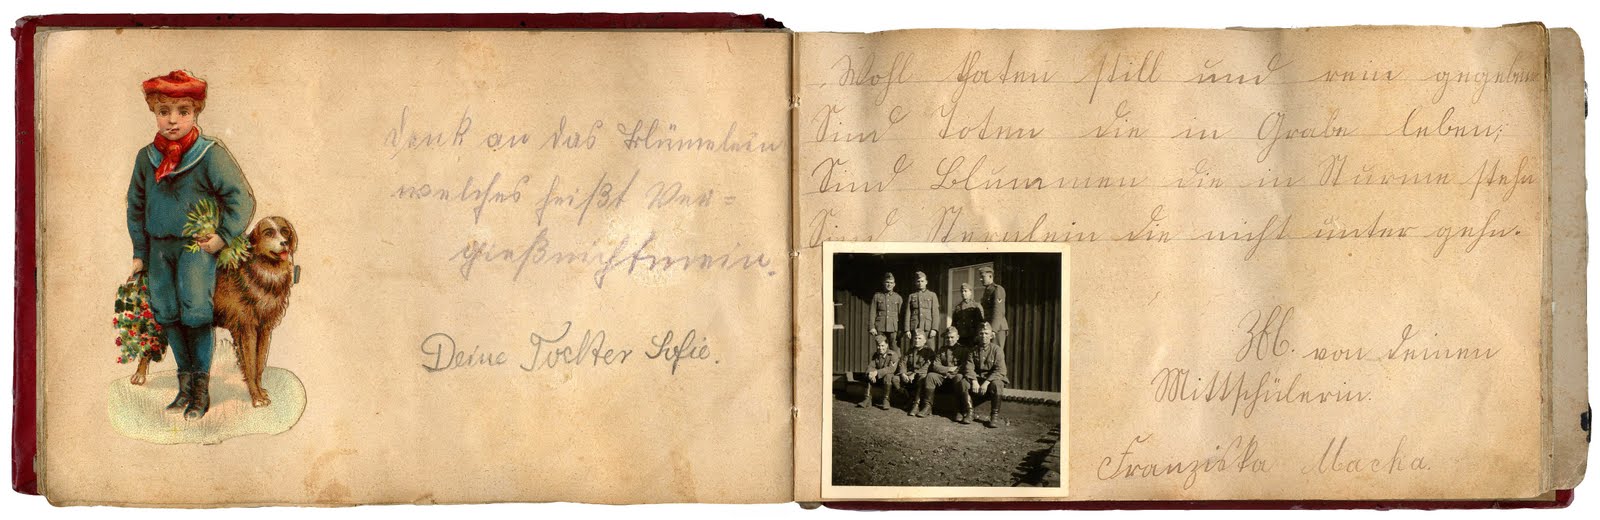 Denk an das Blümelein
welches heißt Ver=
gießnichtmein.
Deine Tochter Sofie.
Wohl thaten still und rein gegeben
Sind Toten die in Grabe leben;
Sind Blummen die in Sturme stehn
Sind Sternlein die nicht unter gehn.
von deinen
Mittschülerin.
Franziska Macha.